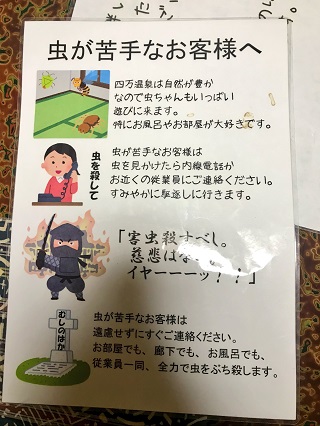 虫が苦手なお客様へ
四万温泉は自然が豊か
なので虫ちゃんもいっぱい
遊びに来ます。
特にお風呂やお部屋が大好きです。
虫を殺して
虫が苦手なお客様は
虫を見かけたら内線電話か
お近くの従業員にご連絡ください。
すみやかに駆逐しに行きます。
「害虫殺すべし。
慈悲は
イヤーーーッ！！」
むしのはか
虫が苦手なお客様は
遠慮せずにすぐご連絡ください。
お部屋でも、廊下でも、お風呂でも、
従業員一同、全力で虫をぶち殺します。